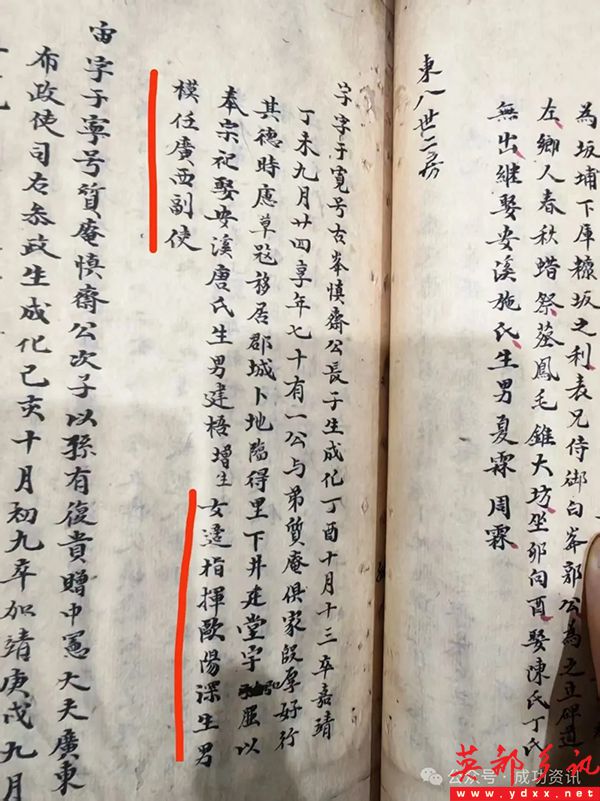 為坂埔下庫糠坂之利表兄侍御白峯郭公為之立碑道
左鄉人春秋蜡祭葬鳳毛錐大坊坐卯向酉娶陳氏丁氏
無出継娶安溪施氏生男夏霖周霖
東八世二房
宇字于寬号古峯慎齋公長子生成化丁酉十月十三卒嘉靖
丁未九月廿四享年七十有一公与弟質庵俱家饒厚好行
其德時應草冦移居郡城卜地臨得里下井建堂宇屈以
奉宗祀娶安溪唐氏生男建梧增生女適指揮歐陽深生男
模任廣西副使
宙字于寧号質庵慎齋公次子以孫有復貴贈中憲大夫廣東
布政使司右叅政生成化己亥十月初九卒加靖庚戌九月
公众号·成功资讯
英都资讯
www.ydxx.net